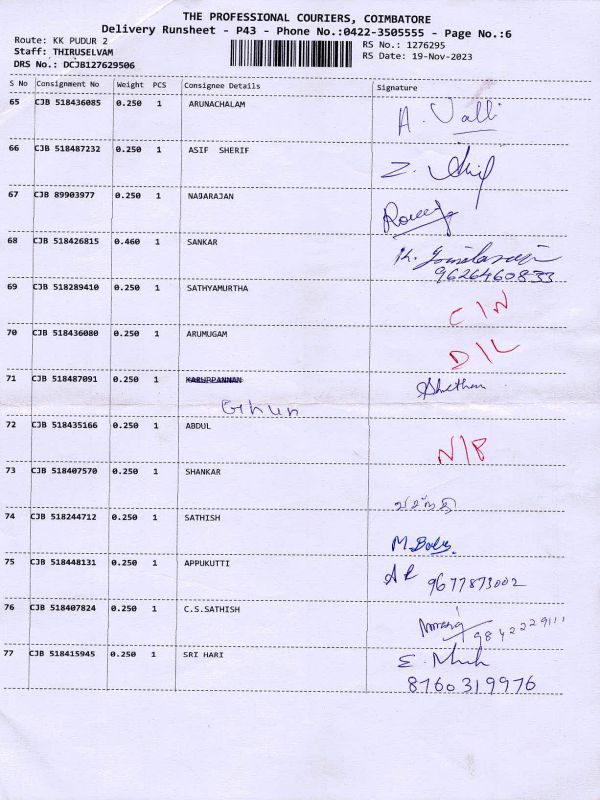 THE PROFESSIONAL COURIERS, COIMBATORE
Delivery Runsheet - P43 - Phone No.:0422-3505555 - Page No.:6
Route: KK PUDUR 2
Staff: THIRUSELVAM
DRS No.: DCJB127629506
RS No.: 1276295
RS Date: 19-Nov-2023
S No Consignment No Weight PCS Consignee Details Signature
65 CJB 518436085 0.250 1 ARUNACHALAM A. Valli
66 CJB 518487232 0.250 1 ASIF SHERIF
67 CJB 89903977 0.250 1 NAGARAJAN
68 CJB 518426815 0.460 1 SANKAR
9626460833
69 CJB 518289410 0.250 1 SATHYAMURTHA
70 CJB 518436080 0.250 1 ARUMUGAM D/L
71 CJB 518487091 0.250 1 KARUPPANNAN
72 CJB 518435166 0.250 1 ABDUL N/P
73 CJB 518407570 0.250 1 SHANKAR
74 CJB 518244712 0.250 1 SATHISH
75 CJB 518448131 0.250 1 APPUKUTTI 9677873002
76 CJB 518407824 0.250 1 C.S.SATHISH
77 CJB 518415945 0.250 1 SRI HARI
8760319976